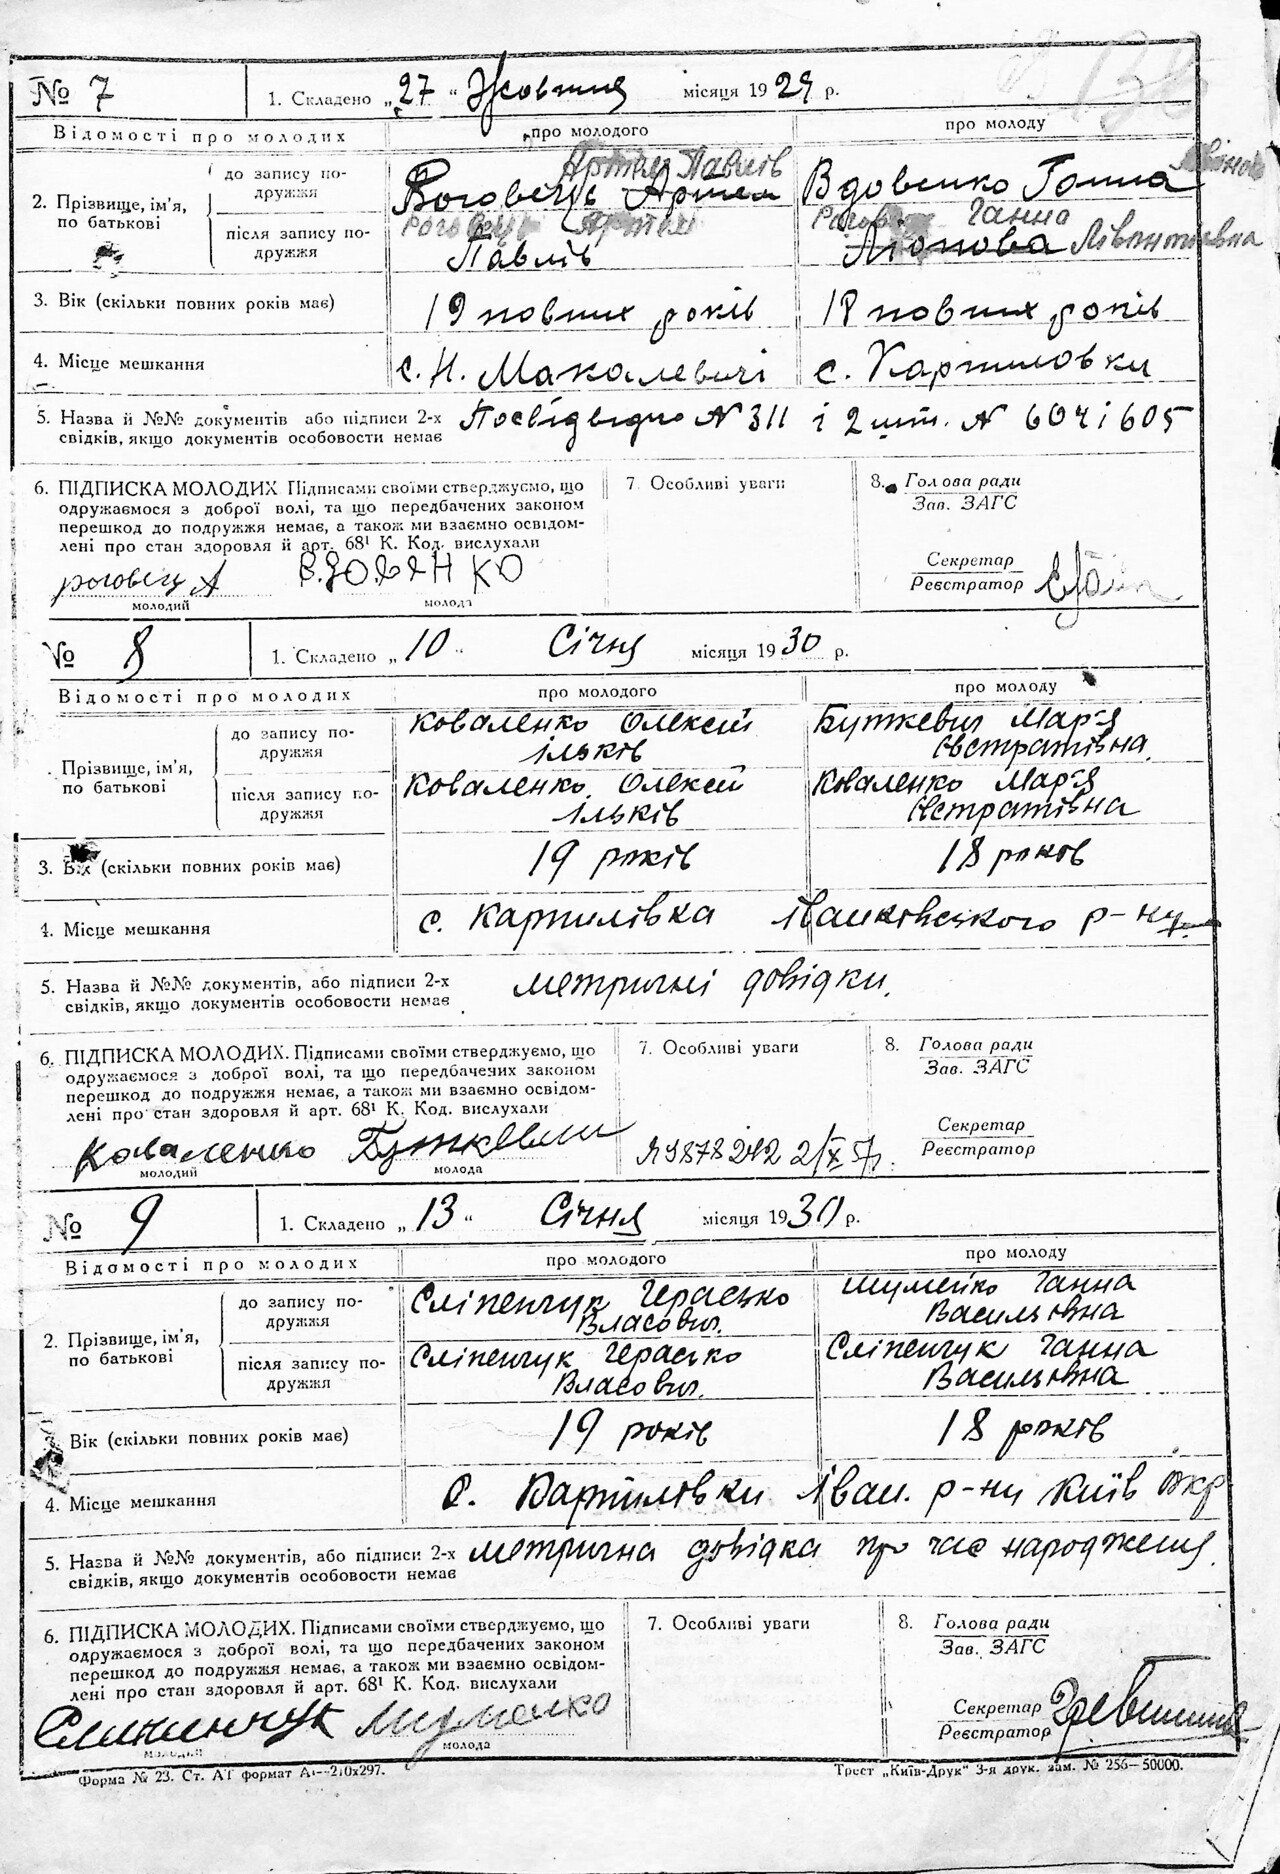 № 7 1. Складено „27“ Жовтня місяця 1929 р.
Відомості про молодих про молодого про молоду
2. Прізвище, ім'я, по батькові
до запису подружжя Роговець Артем Вдовенко Ганна
Артем Павлів
після запису подружжя Артем Ганна
Павлів
3. Вік (скільки повних років має) 19 повних років 18 повних років
4. Місце мешкання с. Н. Макалевичі с. Карпиловки
5. Назва й №№ документів або підписи 2-х Посвідчення N 311 і 2 шт. N 604 і 605
свідків, якщо документів особовости немає
6. ПІДПИСКА МОЛОДИХ. Підписами своїми стверджуємо, що
одружаємося з доброї волі, та що передбачених законом
перешкод до подружжя немає, а також ми взаємно освідом-
лені про стан здоровля й арт. 68¹ К. Код. вислухали
роговец А Вдовенко
молодий молода
7. Особливі уваги
8. Голова ради
Зав. ЗАГС
Секретар
Реєстратор
№ 8 1. Складено „10“ Січня місяця 1930 р.
Відомості про молодих про молодого про молоду
Прізвище, ім'я, по батькові
до запису подружжя Коваленко Олексій Буткевич Мар'я
Ільків Євстратівна
після запису подружжя Коваленко Олексій Коваленко Мар'я
Ільків Євстратівна
3. Вік (скільки повних років має) 19 років 18 років
4. Місце мешкання с. Карпилівка Іванковського р-ну
5. Назва й №№ документів, або підписи 2-х метричні довідки.
свідків, якщо документів особовости немає
6. ПІДПИСКА МОЛОДИХ. Підписами своїми стверджуємо, що
одружаємося з доброї волі, та що передбачених законом
перешкод до подружжя немає, а також ми взаємно освідом-
лені про стан здоровля й арт. 68¹ К. Код. вислухали
Коваленко Буткевич
молодий молода
7. Особливі уваги
8. Голова ради
Зав. ЗАГС
Секретар
Реєстратор
№ 9 1. Складено „13“ Січня місяця 1930 р.
Відомості про молодих про молодого про молоду
2. Прізвище, ім'я, по батькові
до запису подружжя Сліпенчук Герасько Шумейко Ганна
Власович. Васильівна
після запису подружжя Сліпенчук Герасько Сліпенчук Ганна
Власович. Васильівна
3. Вік (скільки повних років має) 19 років 18 років
4. Місце мешкання с. Карпилівки Іван. р-ну Київ Окр
5. Назва й №№ документів, або підписи 2-х метрична довідка про час народження.
свідків, якщо документів особовости немає
6. ПІДПИСКА МОЛОДИХ. Підписами своїми стверджуємо, що
одружаємося з доброї волі, та що передбачених законом
перешкод до подружжя немає, а також ми взаємно освідом-
лені про стан здоровля й арт. 68¹ К. Код. вислухали
молодий молода
7. Особливі уваги
8. Голова ради
Зав. ЗАГС
Секретар
Реєстратор
Форма № 23. Ст. А1 формат А4—210х297. Трест „Київ-Друк“ 3-я друк. зам. № 256—50000.